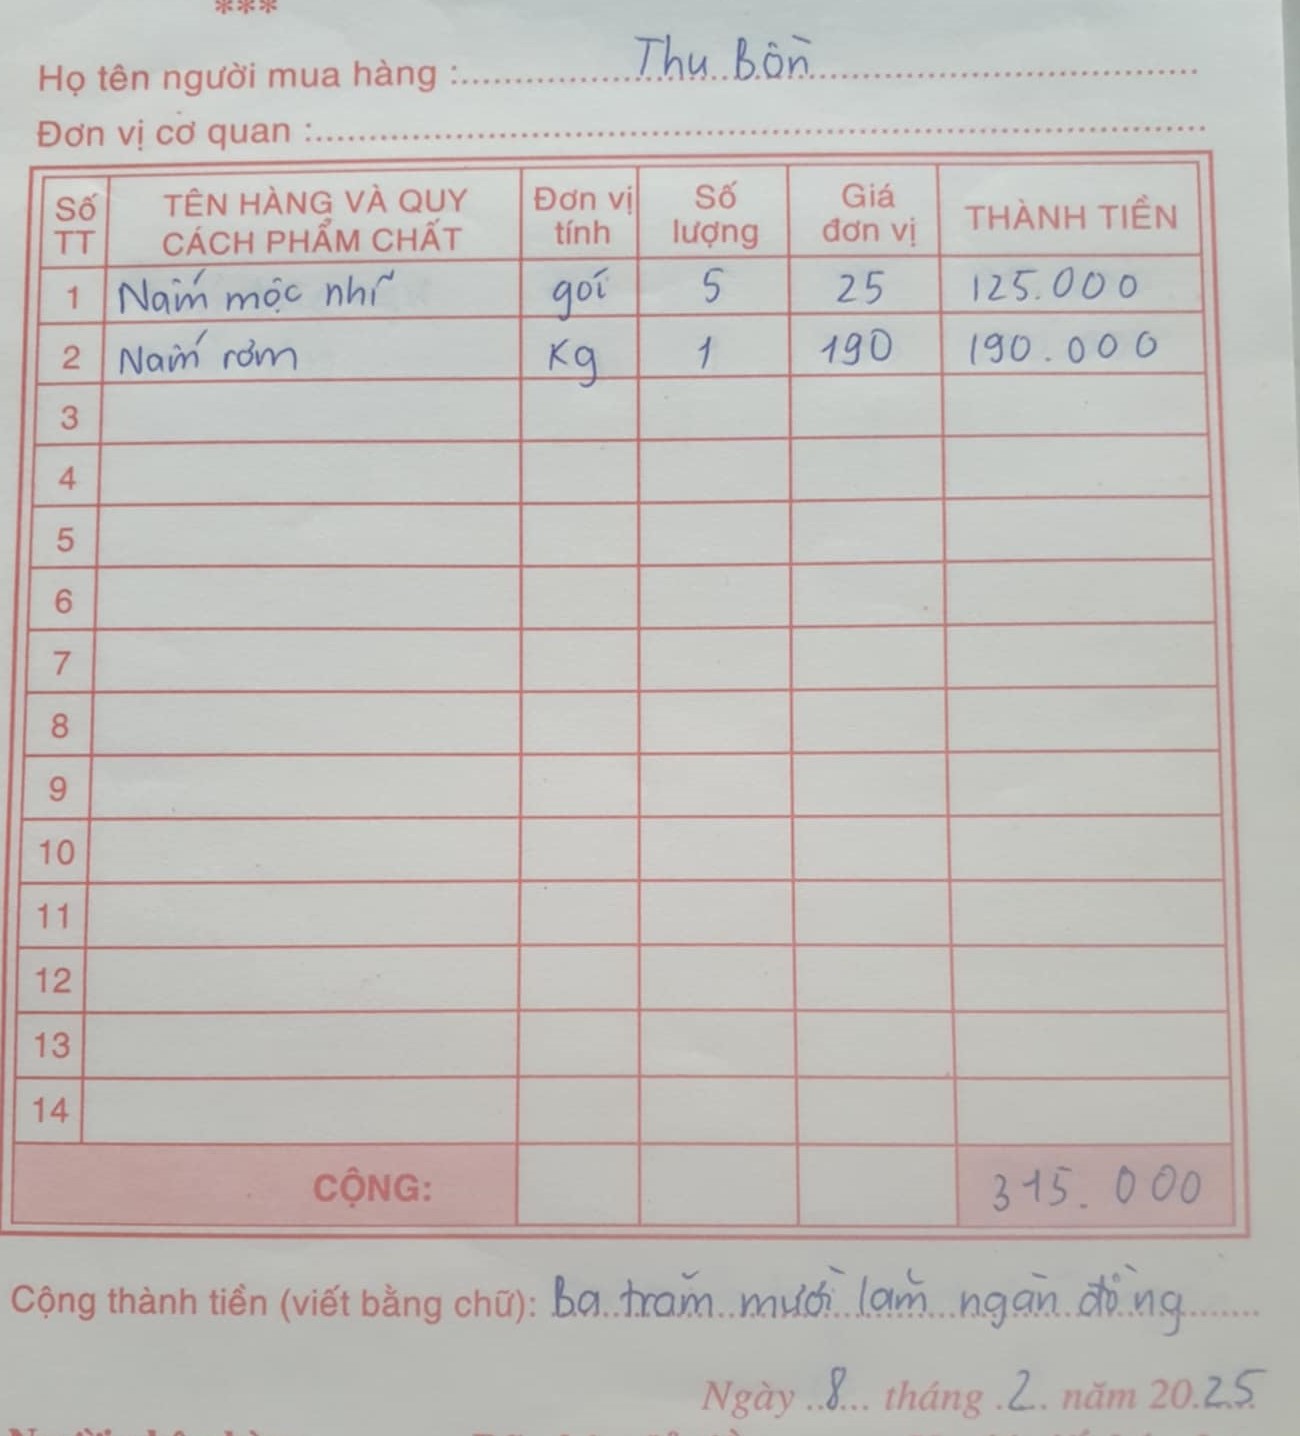 ***
Họ tên người mua hàng : Thu Bồn
Đơn vị cơ quan :
Số TT TÊN HÀNG VÀ QUY CÁCH PHẨM CHẤT Đơn vị tính Số lượng Giá đơn vị THÀNH TIỀN
1 Nấm mộc nhĩ gói 5 25 125.000
2 Nấm rơm Kg 1 190 190.000
3
4
5
6
7
8
9
10
11
12
13
14
CỘNG: 315.000
Cộng thành tiền (viết bằng chữ): Ba trăm mười lăm ngàn đồng
Ngày 8 tháng 2 năm 2025